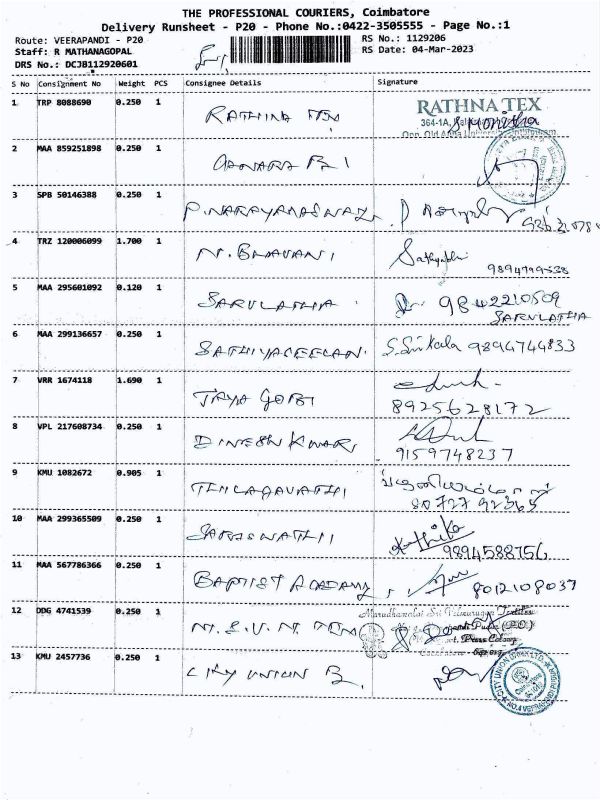 THE PROFESSIONAL COURIERS, Coimbatore
Delivery Runsheet - P20 - Phone No.:0422-3505555 - Page No.:1
Route: VEERAPANDI - P20
Staff: R MATHANAGOPAL
DRS No.: DCJB112920601
RS No.: 1129206
RS Date: 04-Mar-2023
S No Consignment No Weight PCS Consignee Details Signature
1 TRP 8088690 0.250 1 RATHINA TEX RATHNA TEX
364-1A,
2 MAA 859251898 0.250 1 CANARA B
3 SPB 50146388 0.250 1 P. NARAYANASWAMY
4 TRZ 120006099 1.700 1 N. BHAVANI
5 MAA 295601092 0.120 1 SARULATHA 9842210509
SARULATHA
6 MAA 299136657 0.250 1 SATHIYASEELAN S. Srikala 9894744833
7 VRR 1674118 1.690 1 JAYA GOPI
8925628172
8 VPL 217608734 0.250 1 DINESH KUMAR
9159748237
9 KMU 1082672 0.905 1 THILAGAVATHI
10 MAA 299365509 0.250 1 SARASWATHI
9894588756
11 MAA 567786366 0.250 1 BAPTIST ACADAMY 8012108037
12 DDG 4741539 0.250 1 M.S.V.N. TEX
13 KMU 2457736 0.250 1 CITY UNION B CITY UNION BANK LTD.